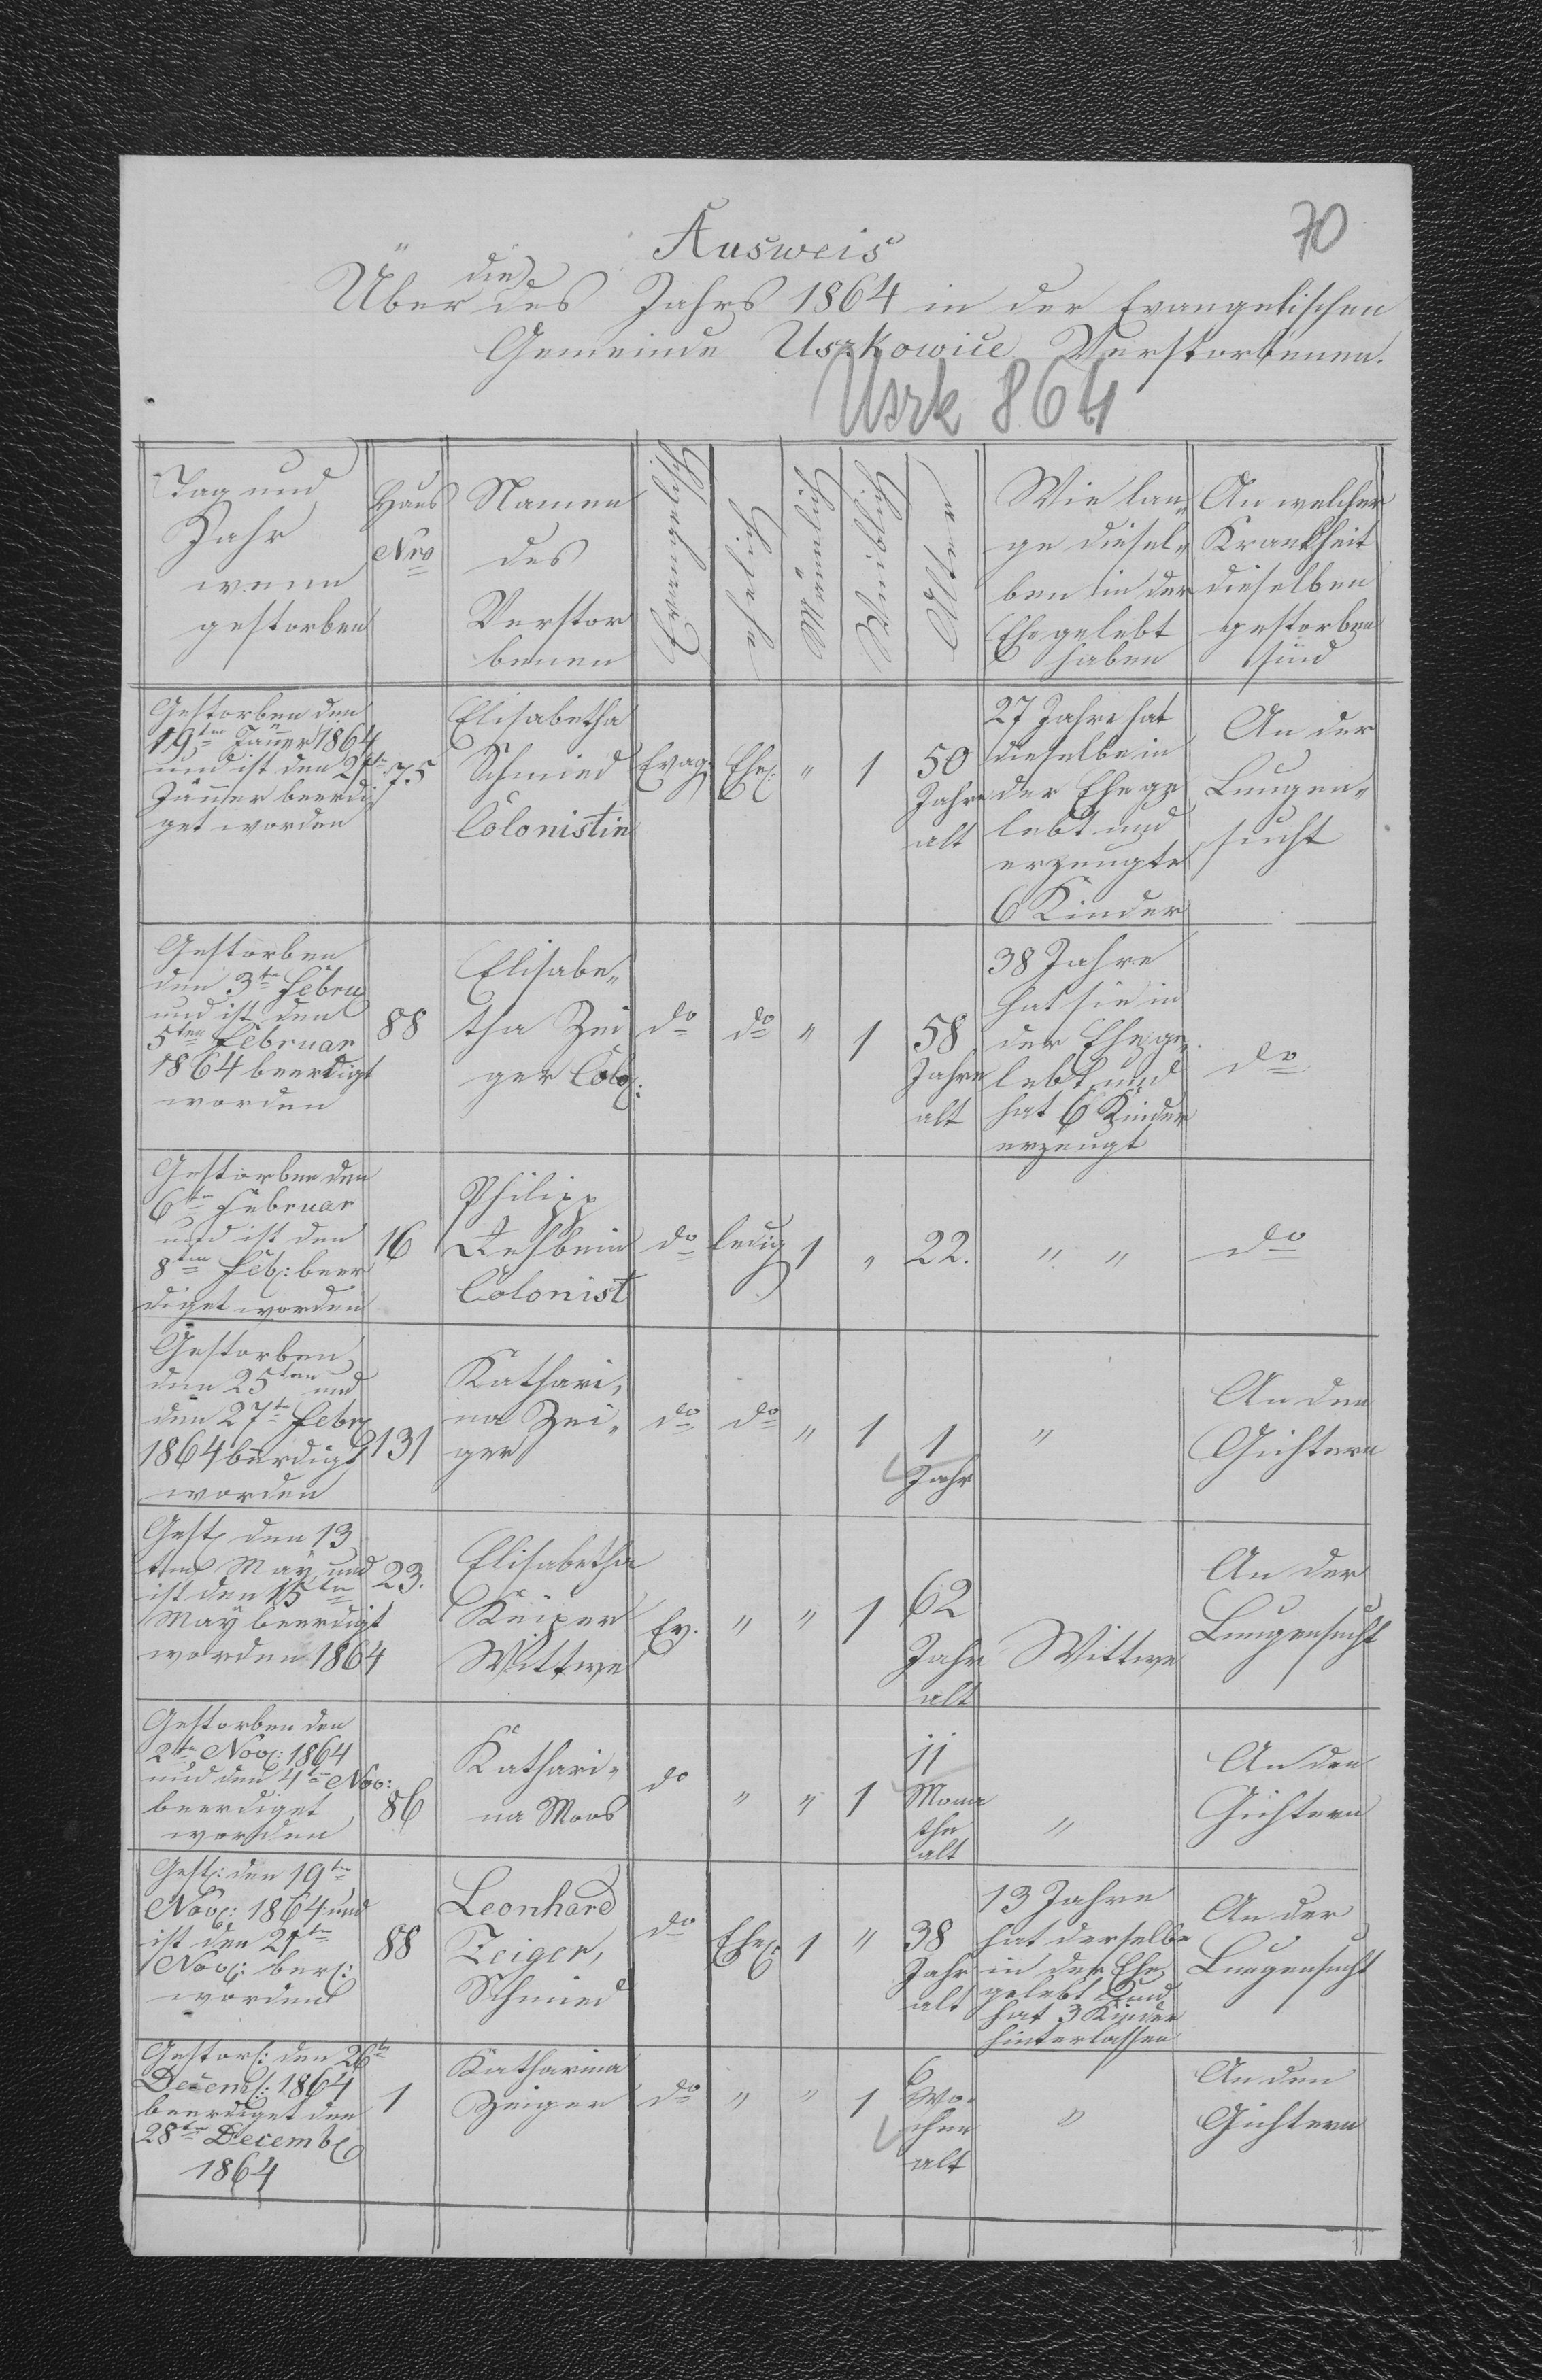 70
Ausweis
Über die des Jahrs 1864 in der Evangelischen
Gemeinde Uszkowice Verstorbenen.
Uszk 864
Tag und
Jahr
wenn
gestorben
Haus
Nro
Namen
des
Verstor
benen
Evangelisch
Ehelich
Männlich
Weiblich
Alter
Wie lan„
ge diesel„
ben in der
Ehe gelebt
haben
An welcher
Krankheit
dieselben
gestorben
sind
Gestorben den
19ten Jänner 1864
und ist den 21ten
Jänner beerdi
get worden
75
Elisabetha
Schmied
Colonistin
Evag:
Ehe:
„
1
50
Jahre
alt
27 Jahre hat
dieselbe in
der Ehe ge
lebt und
erzeugte
6 Kinder
An der
Lungen„
sucht
Gestorben
den 3ten Febru
und ist den
5ten Februar
1864 beerdigt
worden
88
Elisabe„
tha Zei
ger Colo:
do
do
„
1
58
Jahre
alt
38 Jahre
hat sie in
der Ehe ge„
lebt und
hat 6 Kinder
erzeugt
do
Gestorben den
6ten Februar
und ist den
8ten Feb: beer
diget worden
16
Philipp
Colonist
do
ledig
1
„
22.
„ „
do
Gestorben
den 25ten und
den 27ten Febr
1864 beerdigt
worden
131
Kathari„
na Zei„
ger
do
do
„
1
1
Jahr
„
An den
Gichtern
Gest: den 13
ten May und
ist den 15ten
May beerdigt
worden 1864
23.
Elisabetha
Keiper
Wittwe
Ev.
„
„
1
62
Jahr
alt
Wittwe
An der
Lungensucht
Gestorben den
2ten Nov: 1864
und den 4ten Nov:
beerdiget
worden
86
Kathari„
na Moos
do
„
„
1
11
Mona
the
alt
„
An den
Gichtern
Gest: den 19ten
Nov: 1864 und
ist den 21ten
Nov: beer:
worden
88
Leonhard
Zeiger,
Schmied
do
Ehe:
1
„
38
Jahr
alt
13 Jahre
hat derselbe
in der Ehe
gelebt und
hat 3 Kinder
hinterlassen
An der
Lungensucht
Gestor: den 26ten
Decem: 1864
beerdiget den
28ten Decemb
1864
1
Katharina
Zeiger
do
„
„
1
6
Wo„
chen
alt
„
An den
Gichtern